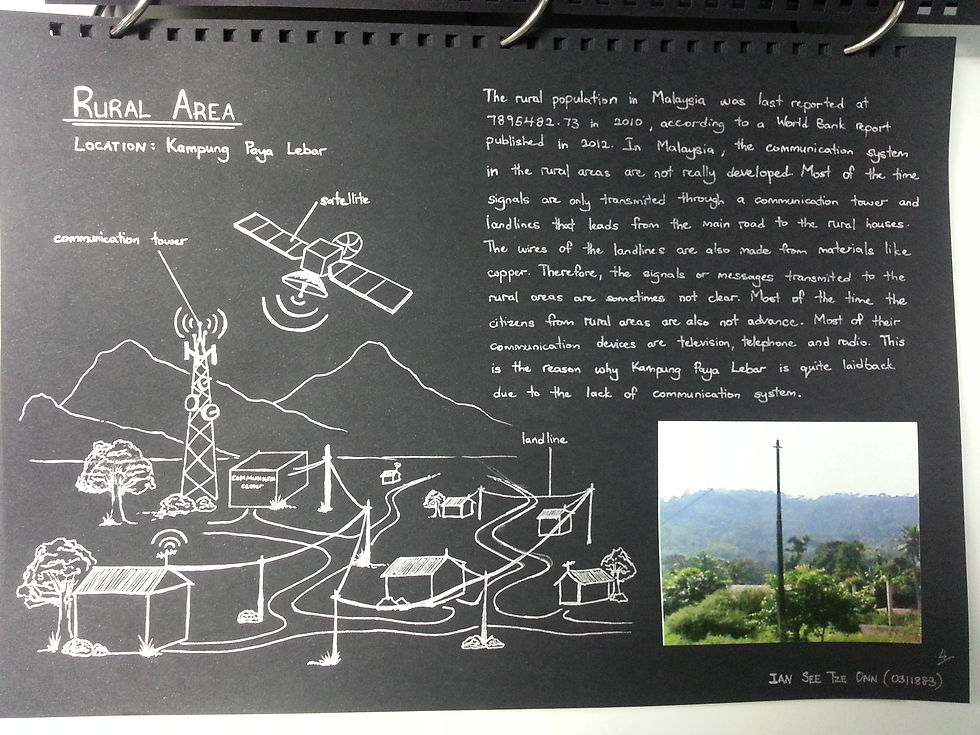 RURAL AREA
LOCATION: Kampung Paya Lebar
The rural population in Malaysia was last reported at
7895482.73 in 2010, according to a World Bank report
published in 2012. In Malaysia, the communication system
in the rural areas are not really developed. Most of the time
signals are only transmited through a communication tower and
landlines that leads from the main road to the rural houses.
The wires of the landlines are also made from materials like
copper. Therefore, the signals or messages transmited to the
rural areas are sometimes not clear. Most of the time the
citizens from rural areas are also not advance. Most of their
communication devices are television, telephone and radio. This
is the reason why Kampung Paya Lebar is quite laidback
due to the lack of communication system.
satellite
communication tower
landline
COMMUNICATION
CENTER
4
IAN SEE TZE ONN (0311883)